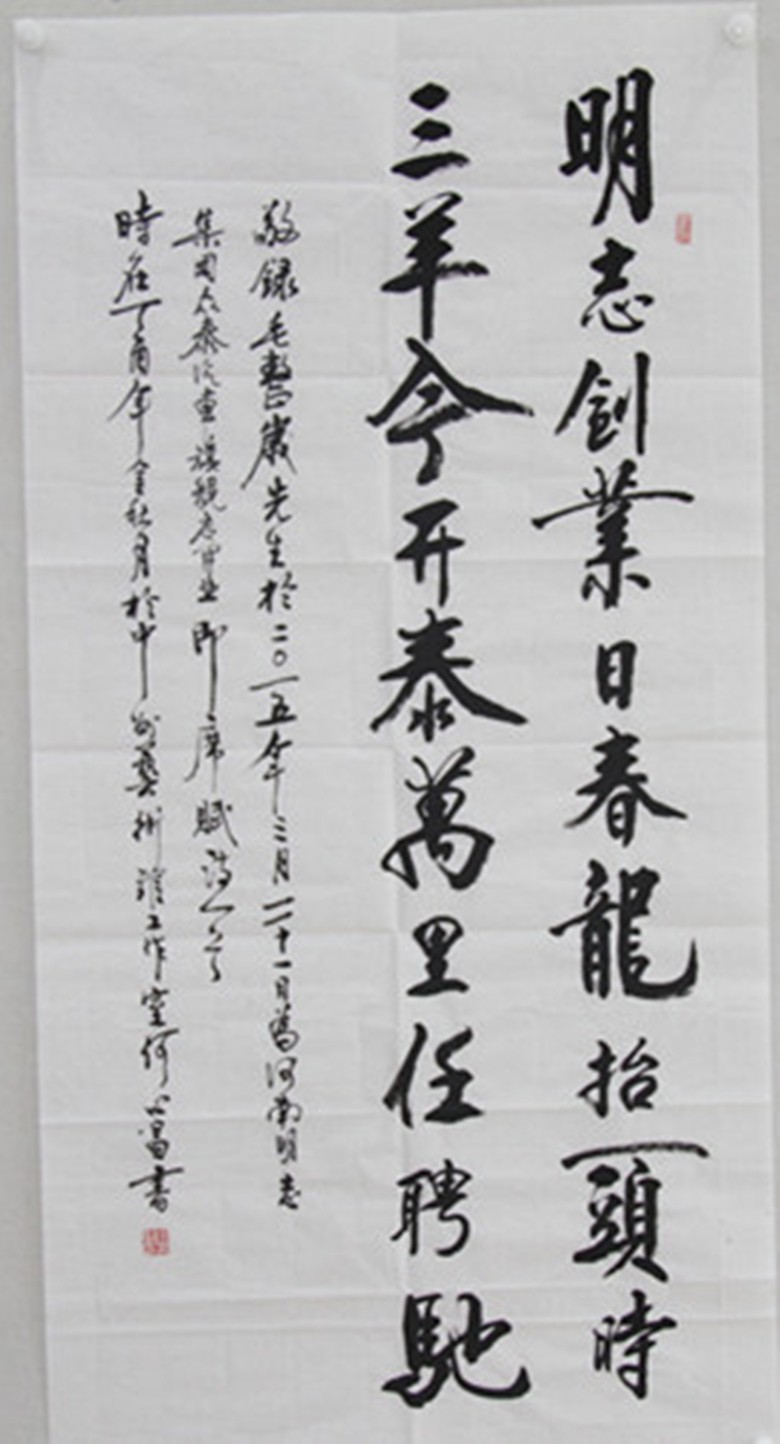 明志創業日春龍抬頭時
三羊今開泰萬里任聘馳
敬録毛整歲先生於二〇一五年三月二十一日為河南明志
集團众泰汽車旗舰店開業即席賦詩一首
時在丁酉年金秋月於中国藝術谁工作室何昌書